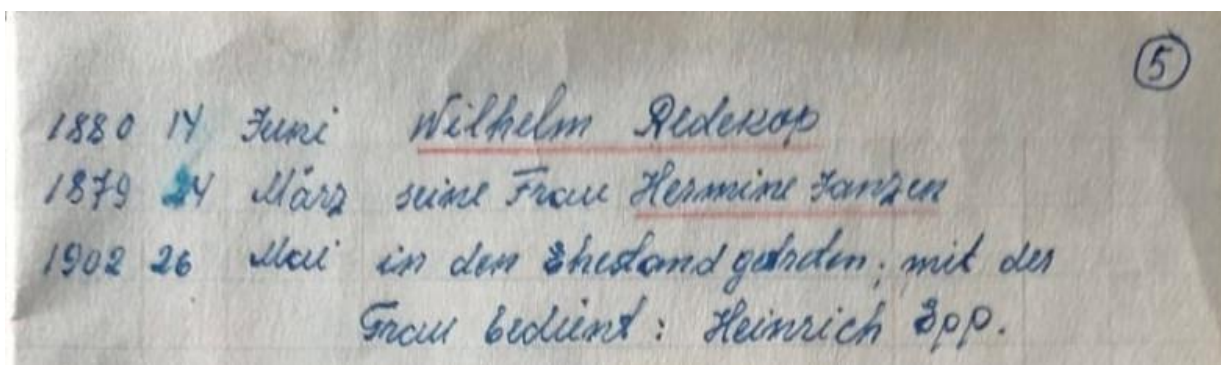 5
1880 14 Juni Wilhelm Redekop
1879 24 März seine Frau Hermine Janzen
1902 26 Mai in den Ehestand getreten; mit der
Frau bedient: Heinrich Epp.